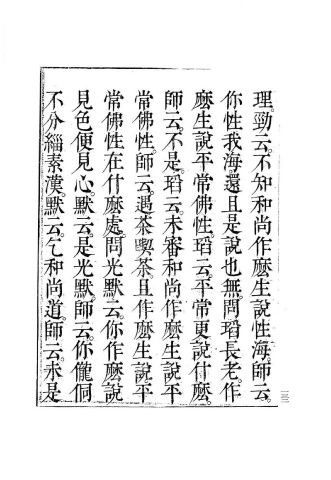 理。勁云。不知和尚作麼生說性海。師云。
你性我海還且是說也無。問瑫長老。作
麼生說平常佛性。瑫云。平常更說什麼。
師云。不是。瑫云。未審和尚作麼生說平
常佛性。師云。遇茶喫茶。且作麼生說平
常佛性在什麼處。問光默。云。你作麼說
見色便見心。默云。是光默。師云。你儱侗
不分緇素漢。默云。乞和尚道。師云。未是
一三